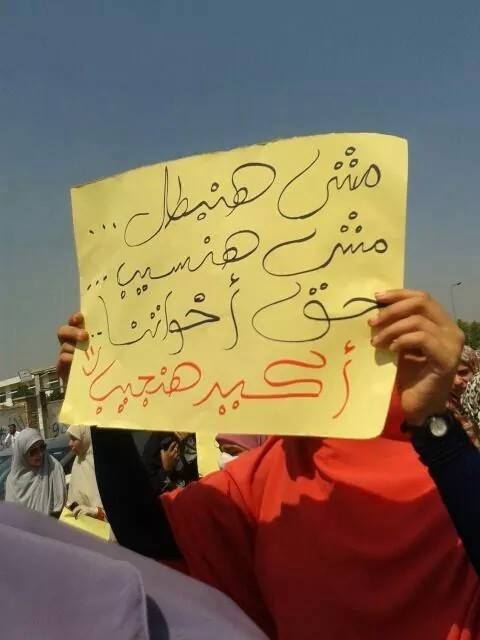 مش هنبطل ...
مش هنسيب ...
حق أخواتنا ..
أكيد هنجيب !!